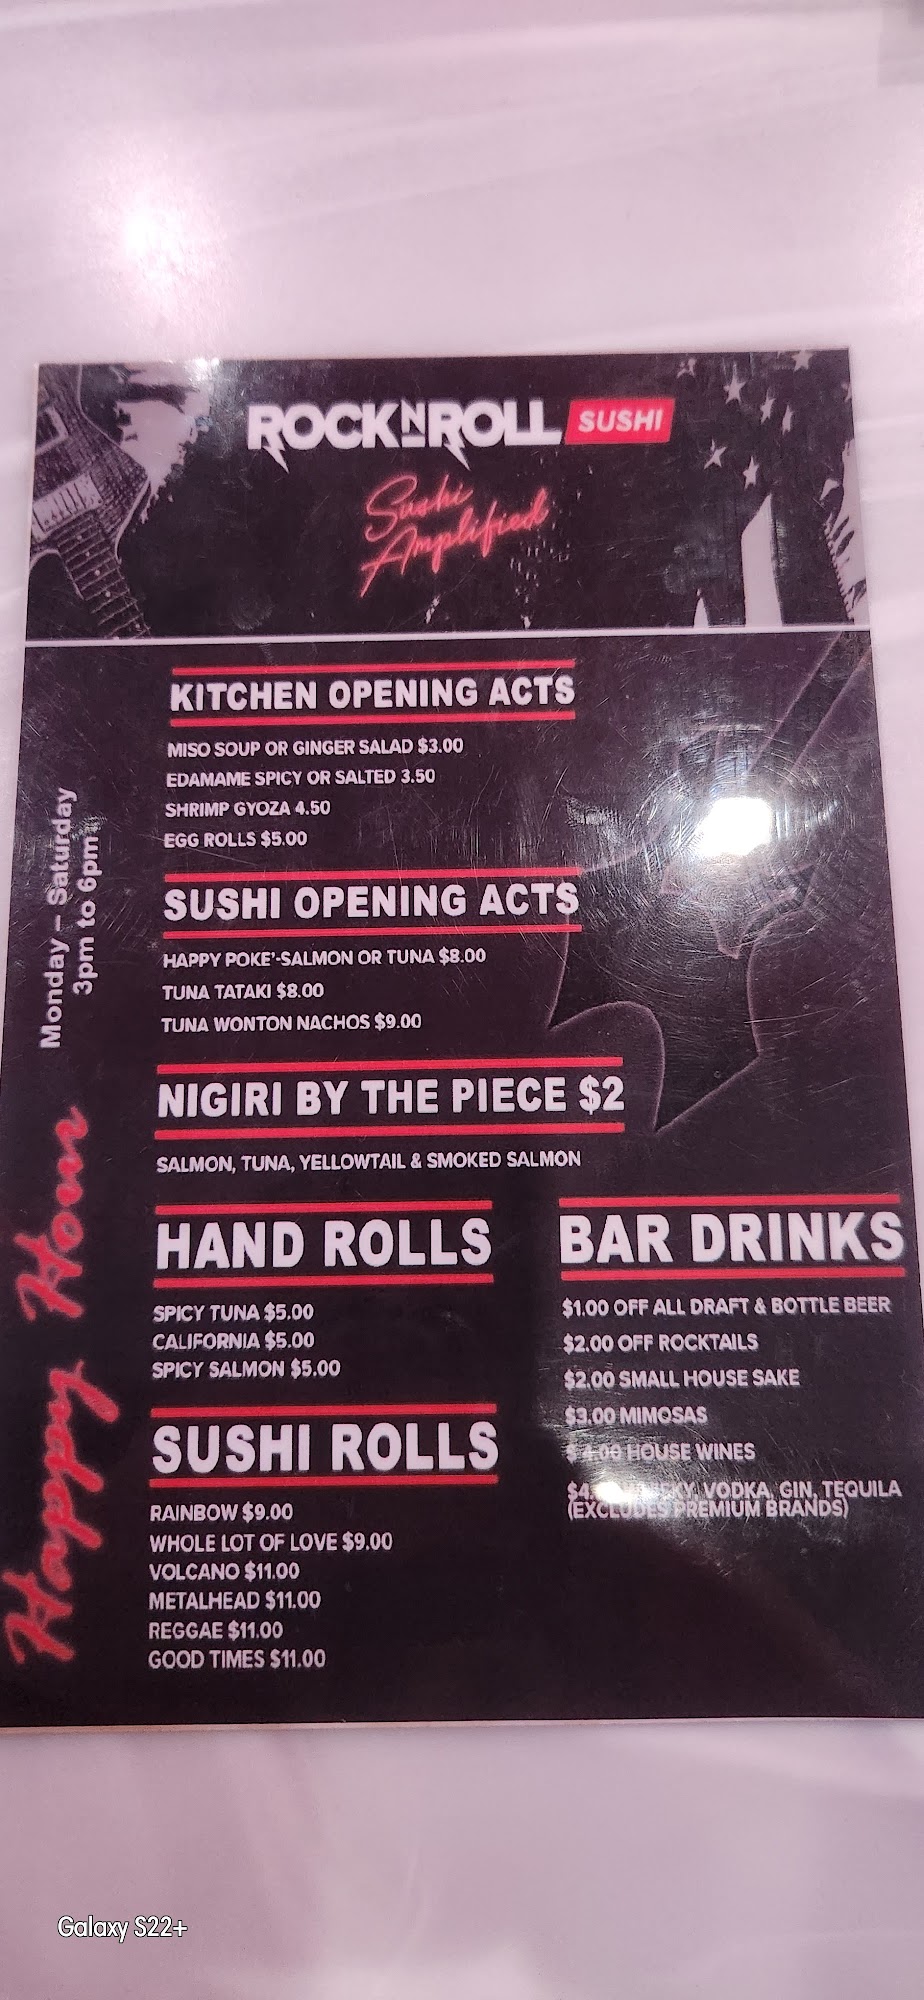 ROCK N ROLL SUSHI
Sushi
Amplified
Monday – Saturday
3pm to 6pm
Happy Hour
KITCHEN OPENING ACTS
MISO SOUP OR GINGER SALAD $3.00
EDAMAME SPICY OR SALTED 3.50
SHRIMP GYOZA 4.50
EGG ROLLS $5.00
SUSHI OPENING ACTS
HAPPY POKE'-SALMON OR TUNA $8.00
TUNA TATAKI $8.00
TUNA WONTON NACHOS $9.00
NIGIRI BY THE PIECE $2
SALMON, TUNA, YELLOWTAIL & SMOKED SALMON
HAND ROLLS
SPICY TUNA $5.00
CALIFORNIA $5.00
SPICY SALMON $5.00
SUSHI ROLLS
RAINBOW $9.00
WHOLE LOT OF LOVE $9.00
VOLCANO $11.00
METALHEAD $11.00
REGGAE $11.00
GOOD TIMES $11.00
BAR DRINKS
$1.00 OFF ALL DRAFT & BOTTLE BEER
$2.00 OFF ROCKTAILS
$2.00 SMALL HOUSE SAKE
$3.00 MIMOSAS
$ 4.00 HOUSE WINES
VODKA, GIN, TEQUILA
(EXCLUDES PREMIUM BRANDS)
Galaxy S22+